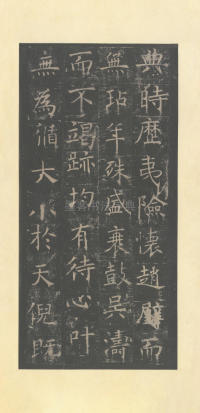 典時歷夷險懷趙璧而
無玷年殊盛衰鼓吳濤
而不竭跡均有待心叶
無為循大小於天倪既